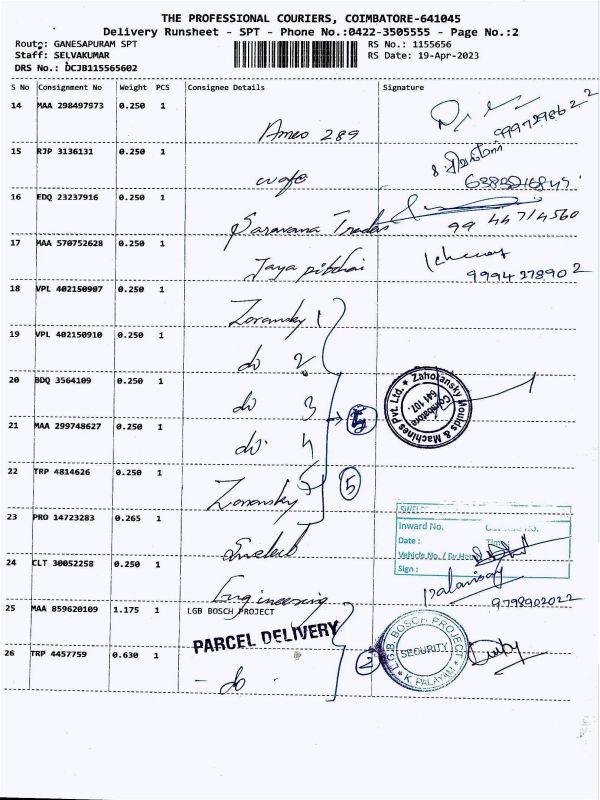 THE PROFESSIONAL COURIERS, COIMBATORE-641045
Delivery Runsheet - SPT - Phone No.:0422-3505555 - Page No.:2
Route: GANESAPURAM SPT
RS No.: 1155656
Staff: SELVAKUMAR
RS Date: 19-Apr-2023
DRS No.: DCJB115565602
S No Consignment No Weight PCS Consignee Details Signature
14 MAA 298497973 0.250 1
Ameo 289
15 RJP 3136131 0.250 1
16 EDQ 23237916 0.250 1
Saravana Trades 99 44714560
17 MAA 570752628 0.250 1
Jaya 9994278902
18 VPL 402150907 0.250 1
Zoransky 1
19 VPL 402150910 0.250 1
do 2
20 BDQ 3564109 0.250 1
do 3
Zahoransky Moulds & Machines Pvt. Ltd. ★
Coimbatore
641 107.
21 MAA 299748627 0.250 1
do 4
22 TRP 4814626 0.250 1
Zoransky 5
5
23 PRO 14723283 0.265 1
Inward No.
Date :
Time:
Vehicle No. / By Hand
Sign :
24 CLT 30052258 0.250 1
Engineering 9798902022
25 MAA 859620109 1.175 1 LGB BOSCH PROJECT
PARCEL DELIVERY
26 TRP 4457759 0.630 1
- do -
2
L.G.B BOSCH PROJECT
SECURITY
★ K. PALAYAM ★